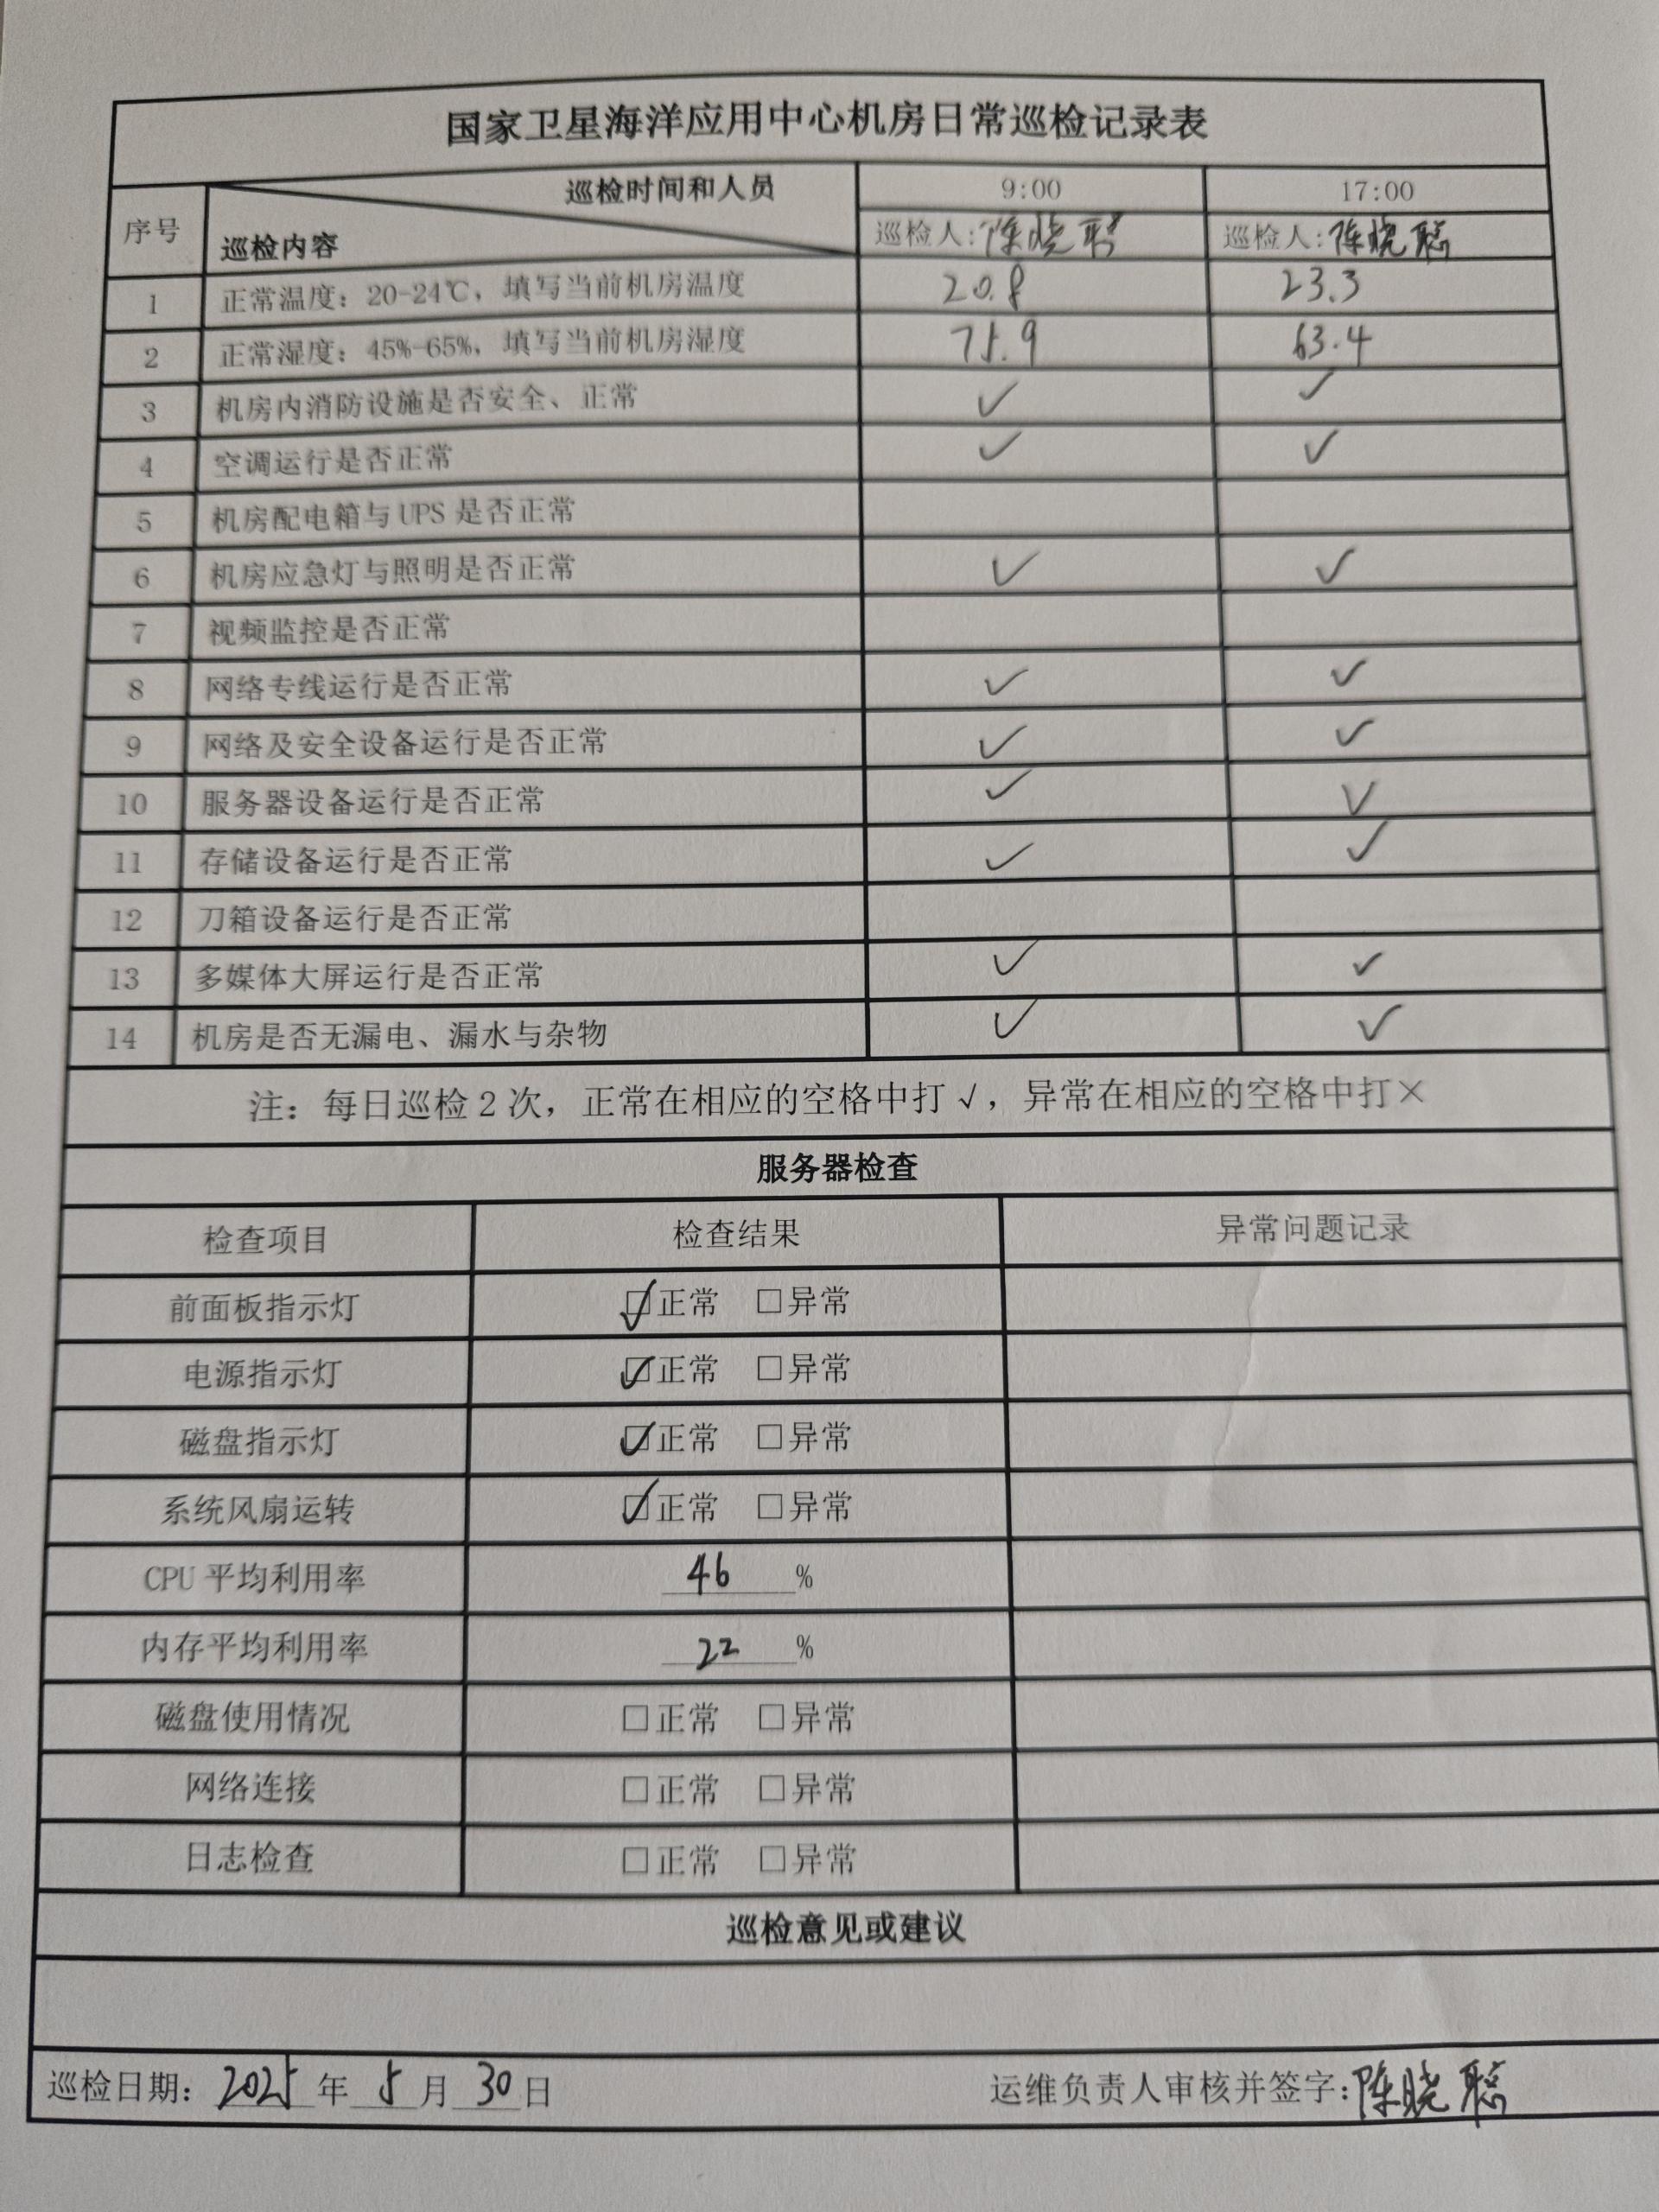 国家卫星海洋应用中心机房日常巡检记录表
序号 巡检时间和人员 巡检内容 9:00 17:00
巡检人:陈晓聪 巡检人:陈晓聪
1 正常温度：20-24℃，填写当前机房温度 20.8 23.3
2 正常湿度：45%-65%，填写当前机房湿度 75.9 63.4
3 机房内消防设施是否安全、正常 ✓ ✓
4 空调运行是否正常 ✓ ✓
5 机房配电箱与 UPS 是否正常
6 机房应急灯与照明是否正常 ✓ ✓
7 视频监控是否正常
8 网络专线运行是否正常 ✓ ✓
9 网络及安全设备运行是否正常 ✓ ✓
10 服务器设备运行是否正常 ✓ ✓
11 存储设备运行是否正常 ✓ ✓
12 刀箱设备运行是否正常
13 多媒体大屏运行是否正常 ✓ ✓
14 机房是否无漏电、漏水与杂物 ✓ ✓
注：每日巡检 2 次，正常在相应的空格中打 √，异常在相应的空格中打×
服务器检查
检查项目 检查结果 异常问题记录
前面板指示灯 ☑正常 □异常
电源指示灯 ☑正常 □异常
磁盘指示灯 ☑正常 □异常
系统风扇运转 ☑正常 □异常
CPU 平均利用率 46 %
内存平均利用率 22 %
磁盘使用情况 □正常 □异常
网络连接 □正常 □异常
日志检查 □正常 □异常
巡检意见或建议
巡检日期：2025 年 5 月 30 日 运维负责人审核并签字:陈晓聪